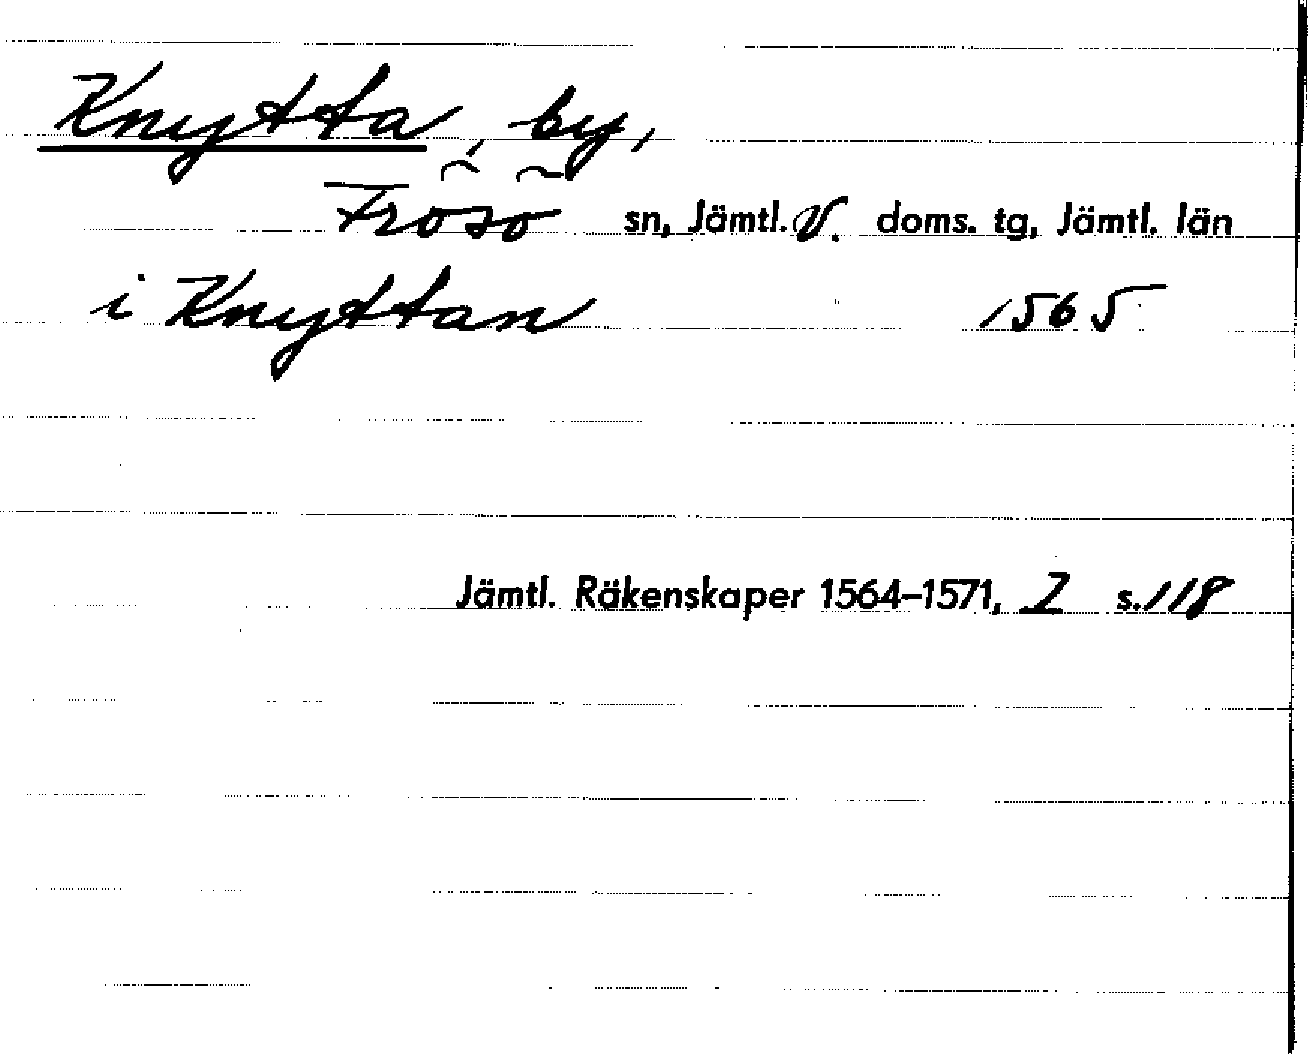 Knytta, by,
Frösö sn, Jämtl. V. doms. tg, Jämtl. län
i Knyttan 1565
Jämtl. Räkenskaper 1564–1571, I s. 118